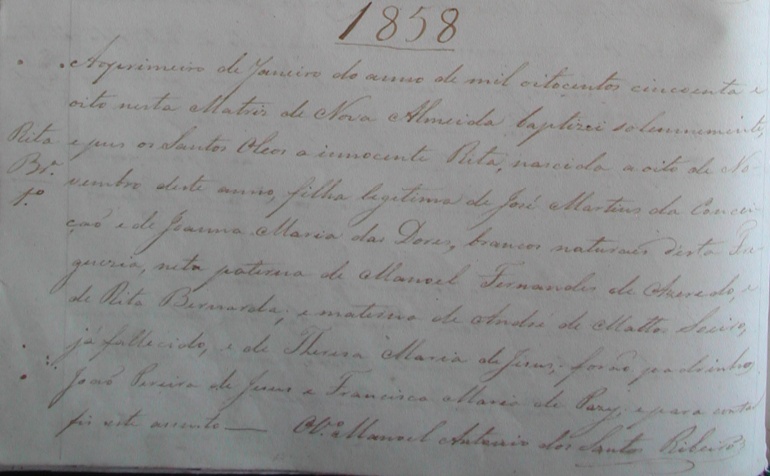 1858
Aoprimeiro de Janeiro do anno de mil oitocentos cincoenta e
oito nesta Matriz de Nova Almeida baptizei solemnemente,
Rita
Br.ª
1.º
e pus os Santos Oleos a innocente Rita, nascida a oito de No-
vembro deste anno, filha legitima de José Martins da Concei-
ção e de Joanna Maria das Dores, brancos naturais desta Fre-
guezia, neta paterna de Manoel Fernandes de Azeredo, e
de Rita Bernarda; e materna de André de Mattos
já fallecido, e de Theresa Maria de Jesus; forão padrinhos
João Pereira de Jesus e Francisca Maria de e para constar
fiz este assento — O V.º Manoel Antonio dos Santos Ribeiro